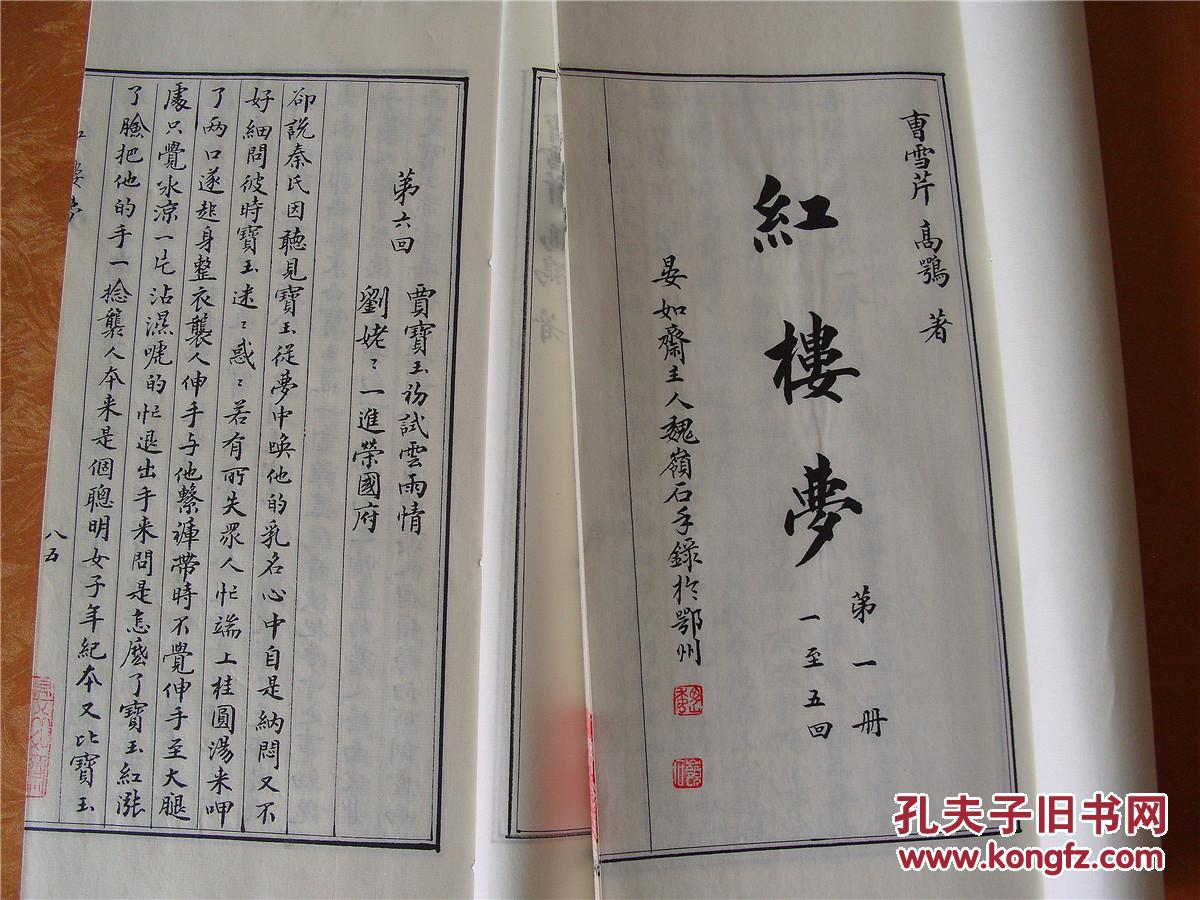 曹雪芹 高鶚 著
紅樓夢
第一册
一至五回
晏如齋主人魏嶺石手錄於鄂州
第六回
賈寶玉初試雲雨情
劉姥〻一進榮國府
卻說秦氏因聽見寶玉從夢中喚他的乳名心中自是納悶又不
好細問彼時寶玉迷〻惑〻若有所失眾人忙端上桂圓湯來呷
了兩口遂起身整衣襲人伸手与他繫褲帶時不覺伸手至大腿
處只覺冰涼一片沾濕唬的忙退出手来問是怎麼了寶玉紅漲
了臉把他的手一捻襲人本来是個聰明女子年紀本又比寶玉
紅樓夢
八五
孔夫子旧书网
www.kongfz.com